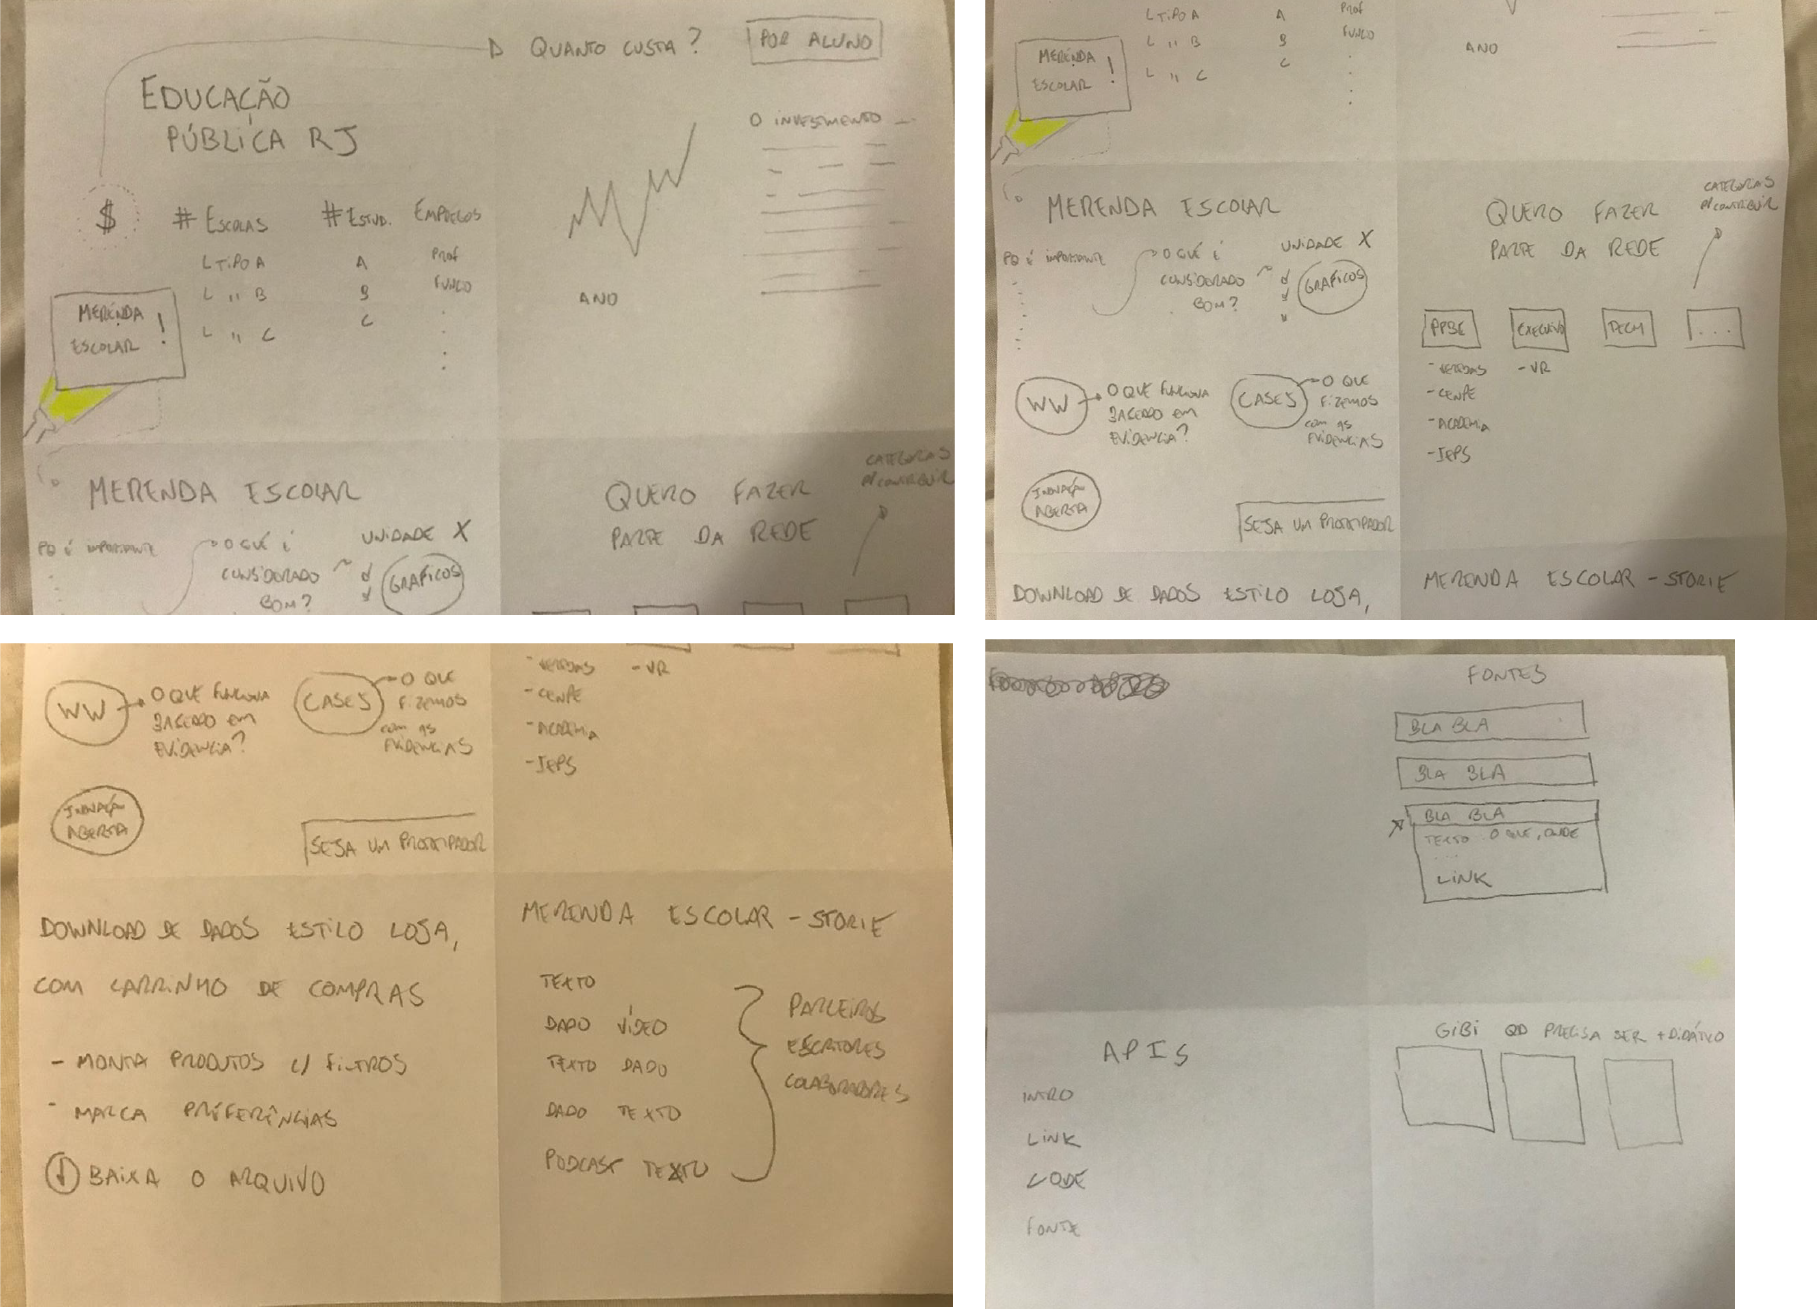 QUANTO CUSTA?
POR ALUNO
EDUCAÇÃO
PÚBLICA RJ
$
# ESCOLAS
L TIPO A
L " B
L " C
# ESTUD.
A
B
C
EMPREGOS
PROF
FUNCO
MERENDA
ESCOLAR !
ANO
O INVESTIMENTO
MERENDA ESCOLAR
PQ É IMPORTANTE
O QUÊ É
CONSIDERADO
BOM?
UNIDADE X
GRÁFICOS
QUERO FAZER
PARTE DA REDE
CATEGORIAS
P/ CONTRIBUIR
L TIPO A
L " B
L " C
A
B
C
PROF
FUNCO
MERENDA
ESCOLAR !
ANO
MERENDA ESCOLAR
PQ É IMPORTANTE
O QUÊ É
CONSIDERADO
BOM?
UNIDADE X
GRÁFICOS
WW
O QUE FUNCIONA
BASEADO EM
EVIDENCIA?
CASES
O QUE
FIZEMOS
COM AS
EVIDENCIAS
INOVAÇÃO
ABERTA
SEJA UM PROTOTIPADOR
QUERO FAZER
PARTE DA REDE
CATEGORIAS
P/ CONTRIBUIR
PPBE
- CENPE
- ACADEMIA
- IEPS
- VR
TECH
...
DOWNLOAD DE DADOS ESTILO LOJA,
MERENDA ESCOLAR - STORIE
WW
O QUE FUNCIONA
BASEADO EM
EVIDENCIA?
CASES
O QUE
FIZEMOS
COM AS
EVIDENCIAS
INOVAÇÃO
ABERTA
SEJA UM PROTOTIPADOR
- VR
- CENPE
- ACADEMIA
- IEPS
DOWNLOAD DE DADOS ESTILO LOJA,
COM CARRINHO DE COMPRAS
- MONTA PRODUTOS C/ FILTROS
- MARCA PREFERÊNCIAS
BAIXA O ARQUIVO
MERENDA ESCOLAR - STORIE
TEXTO
DADO VÍDEO
TEXTO DADO
DADO TEXTO
PODCAST TEXTO
PARCEIROS
ESCRITORES
COLABORADORES
FONTES
BLA BLA
BLA BLA
BLA BLA
TEXTO O QUE, ONDE
...
LINK
APIS
INTRO
LINK
CODE
FONTE
GIBI QD PRECISA SER + DIDÁTICO